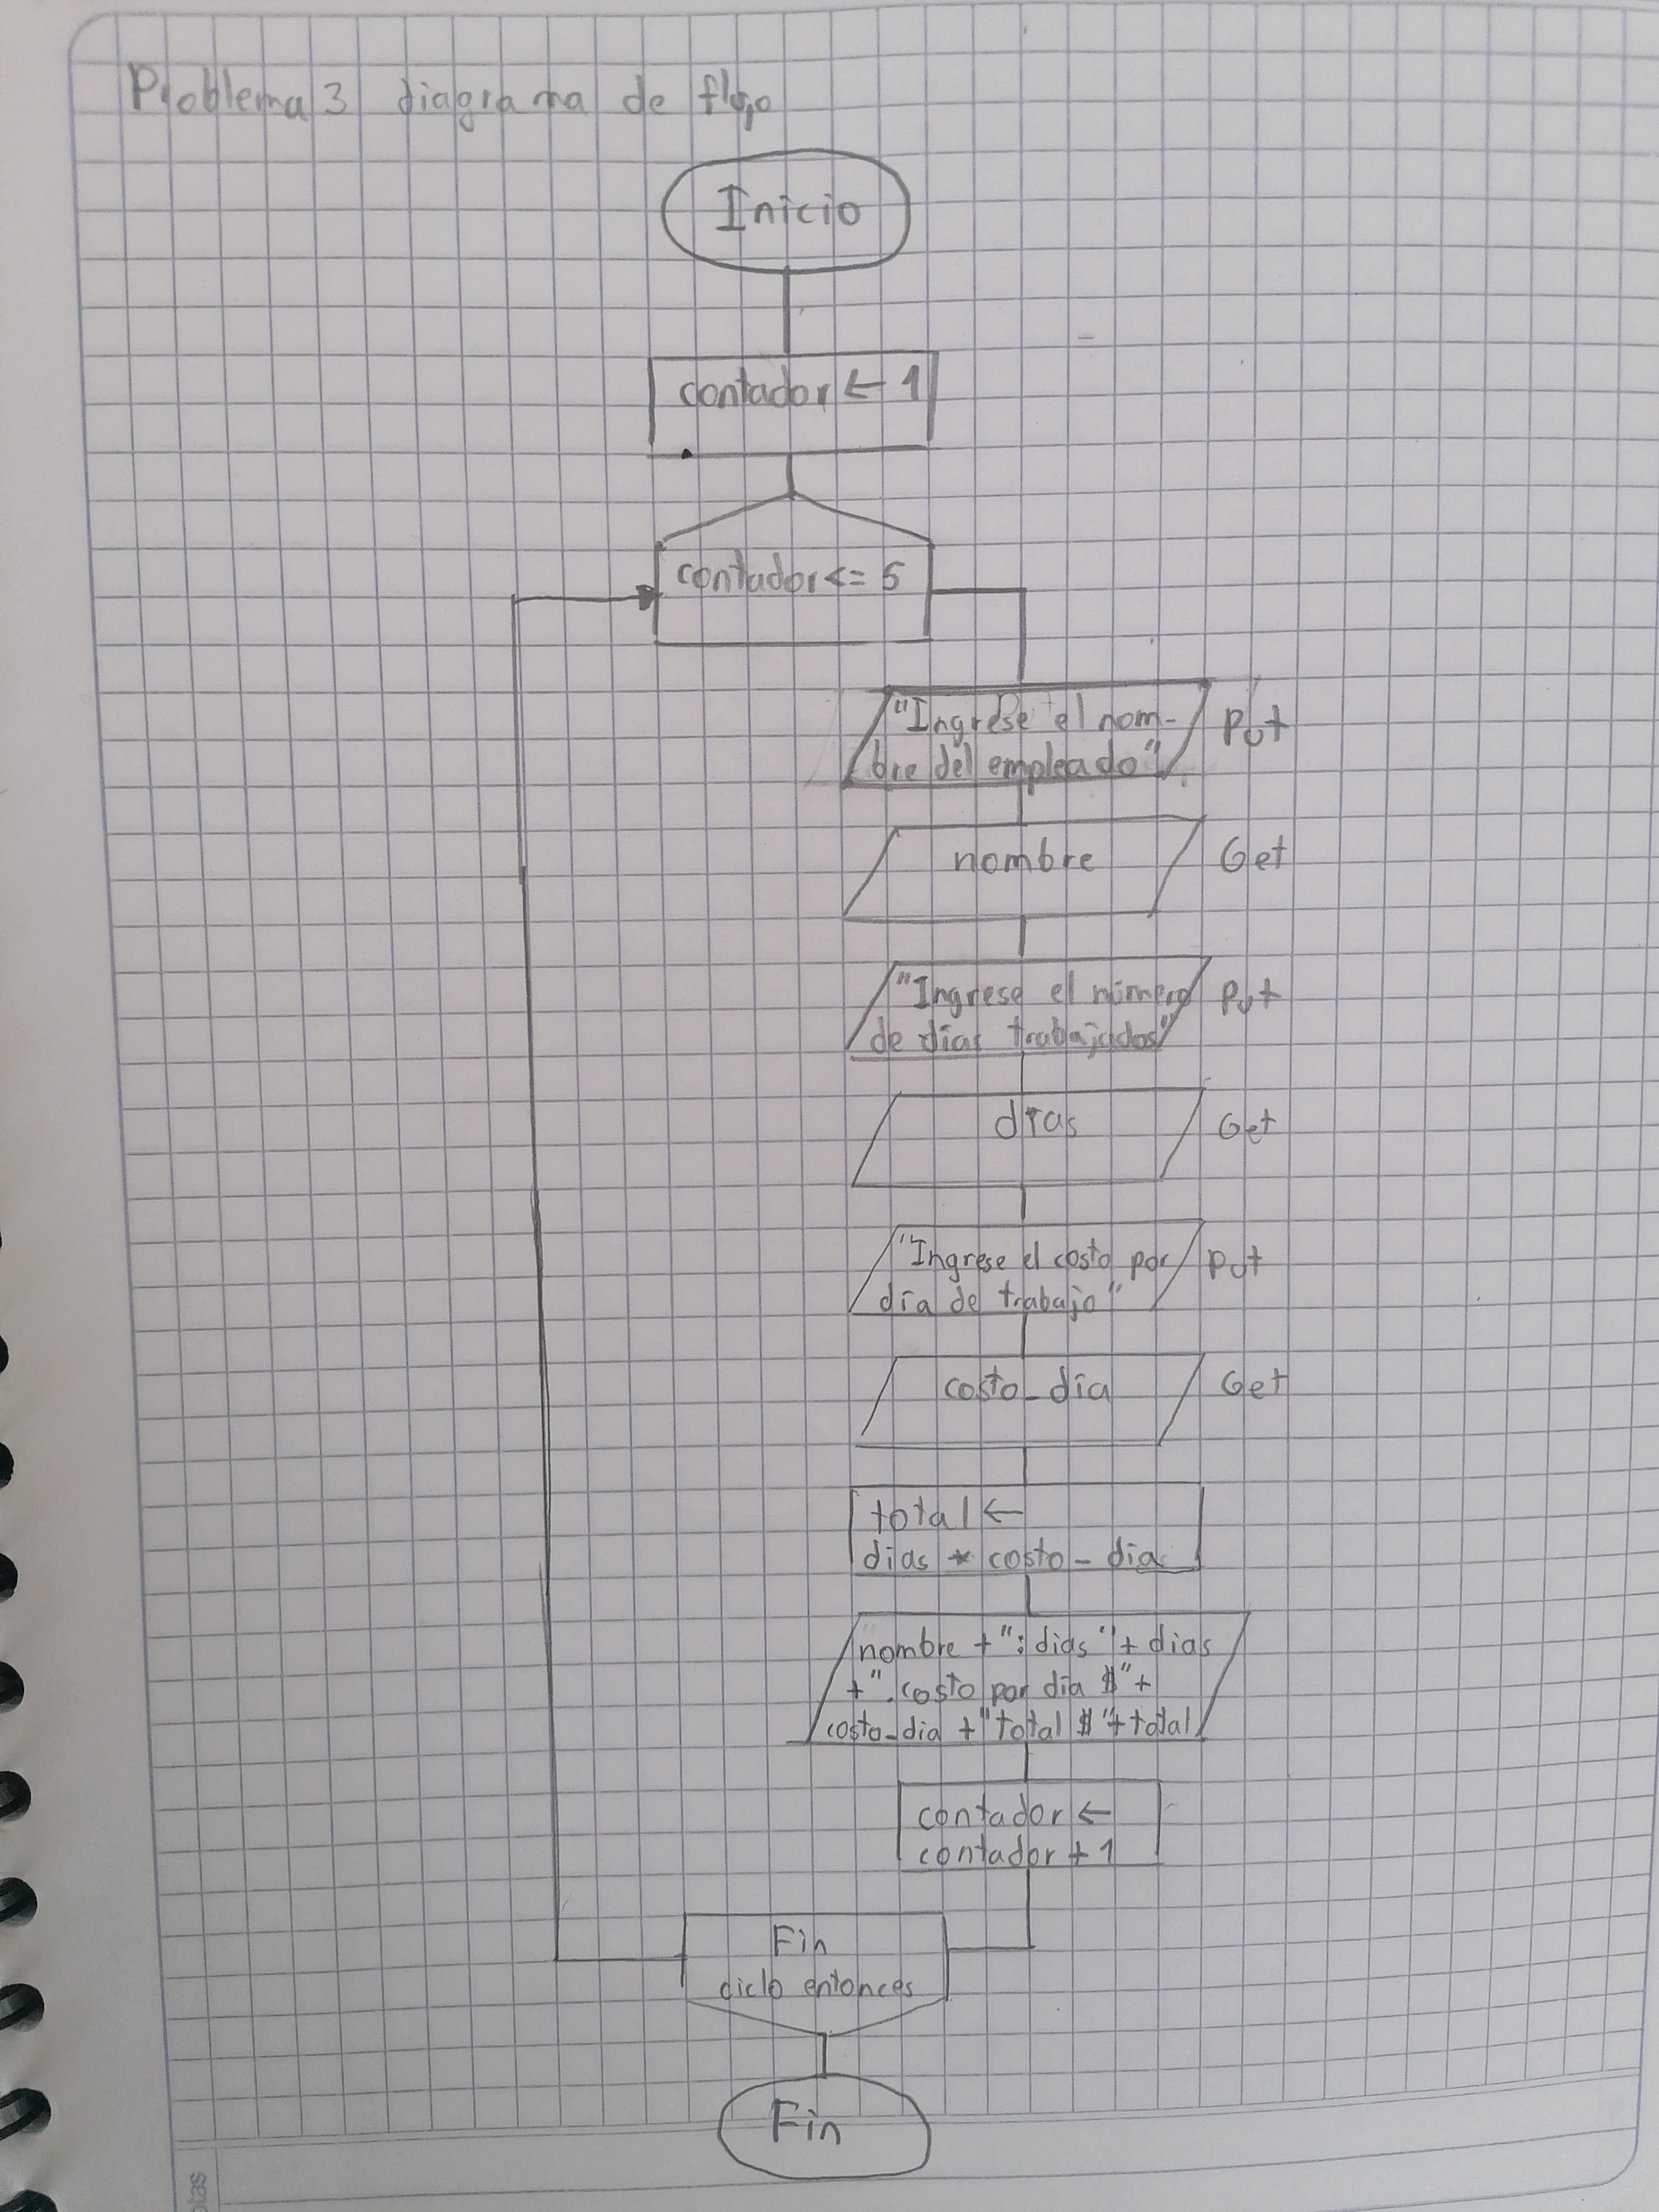 Problema 3 diagrama de flujo
Inicio
contador ← 1
contador <= 5
"Ingrese el nom-
bre del empleado"
Put
nombre
Get
"Ingrese el número
de días trabajados"
Put
dias
Get
"Ingrese el costo por
día de trabajo"
Put
costo_dia
Get
total ←
dias * costo_dia
nombre + ": dias " + dias
+ ". costo por día $" +
costo_dia + "total $" + total
contador ←
contador + 1
Fin
ciclo entonces
Fin